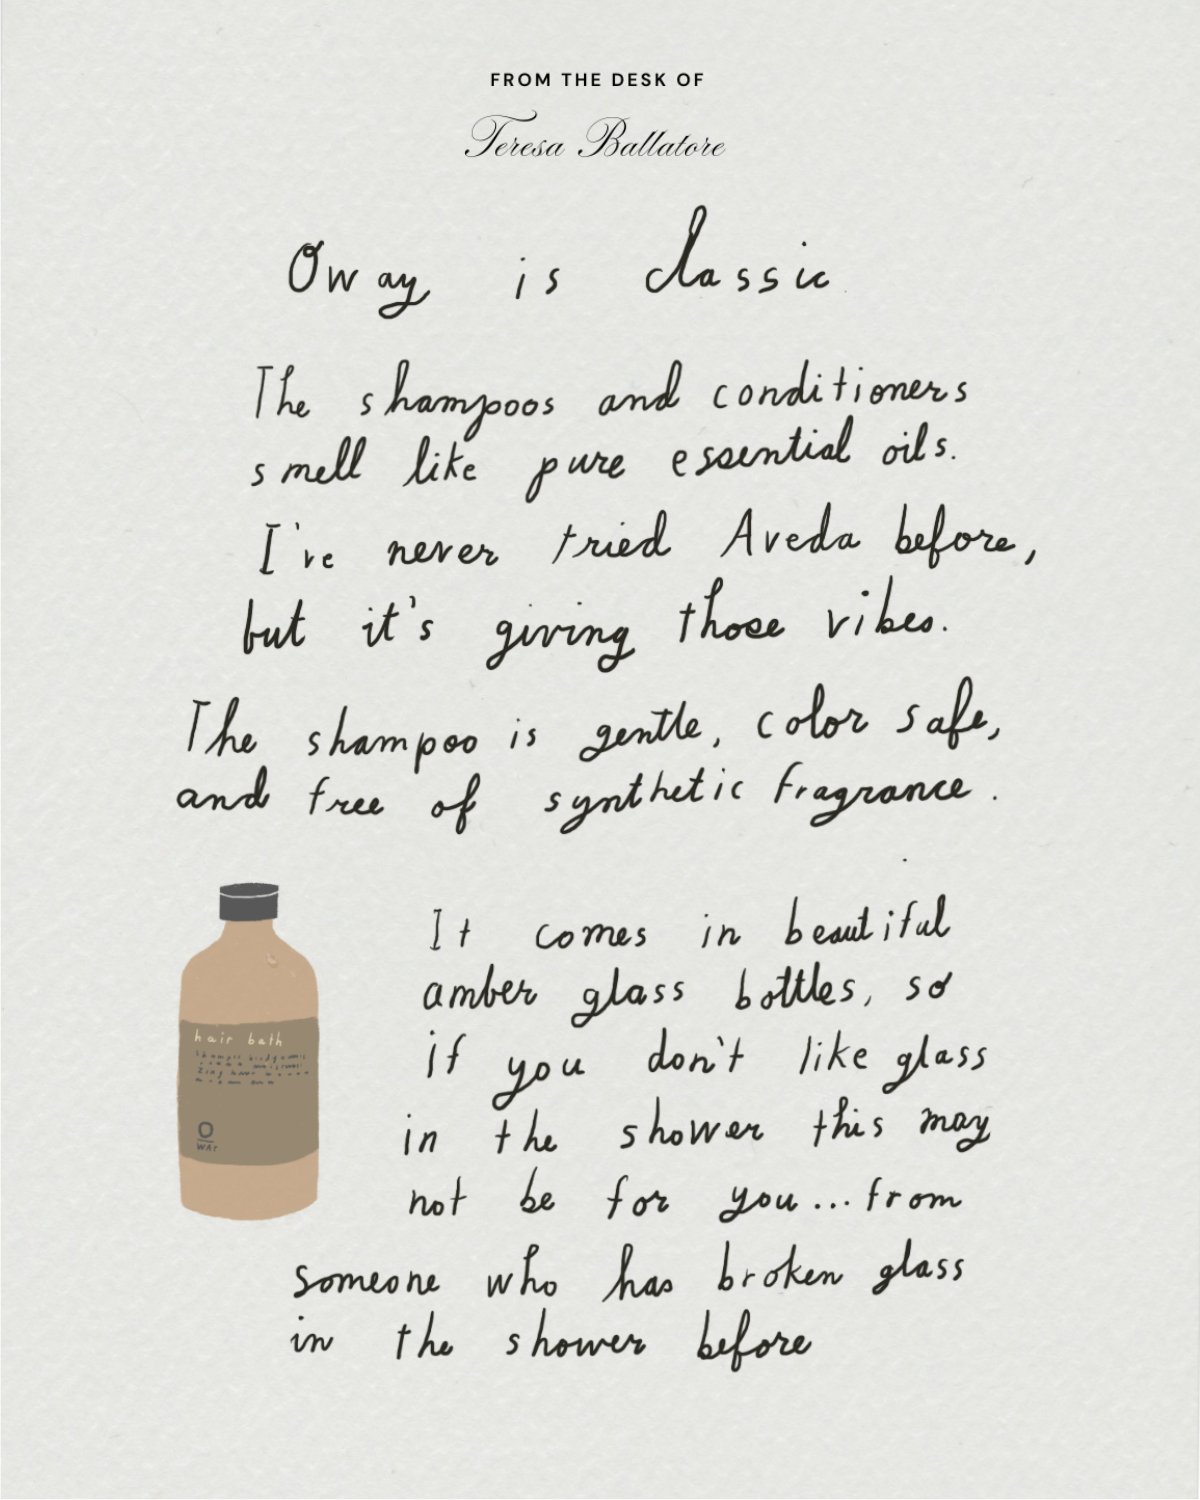 FROM THE DESK OF
Teresa Ballatore
Oway is classic
The shampoos and conditioners
smell like pure essential oils.
I've never tried Aveda before,
but it's giving those vibes.
The shampoo is gentle, color safe,
and free of synthetic fragrance.
It comes in beautiful
amber glass bottles, so
if you don't like glass
in the shower this may
not be for you... from
someone who has broken glass
in the shower before
hair bath
O
WAY